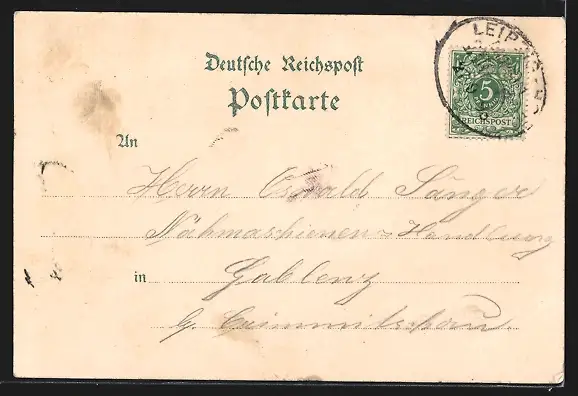 Deutsche Reichspost
Postkarte
LEIPZIG
5
REICHSPOST
An
Herrn Oswald Sänger
Nähmaschienen-Handlung
in Gablenz
b. Crimmitschau.